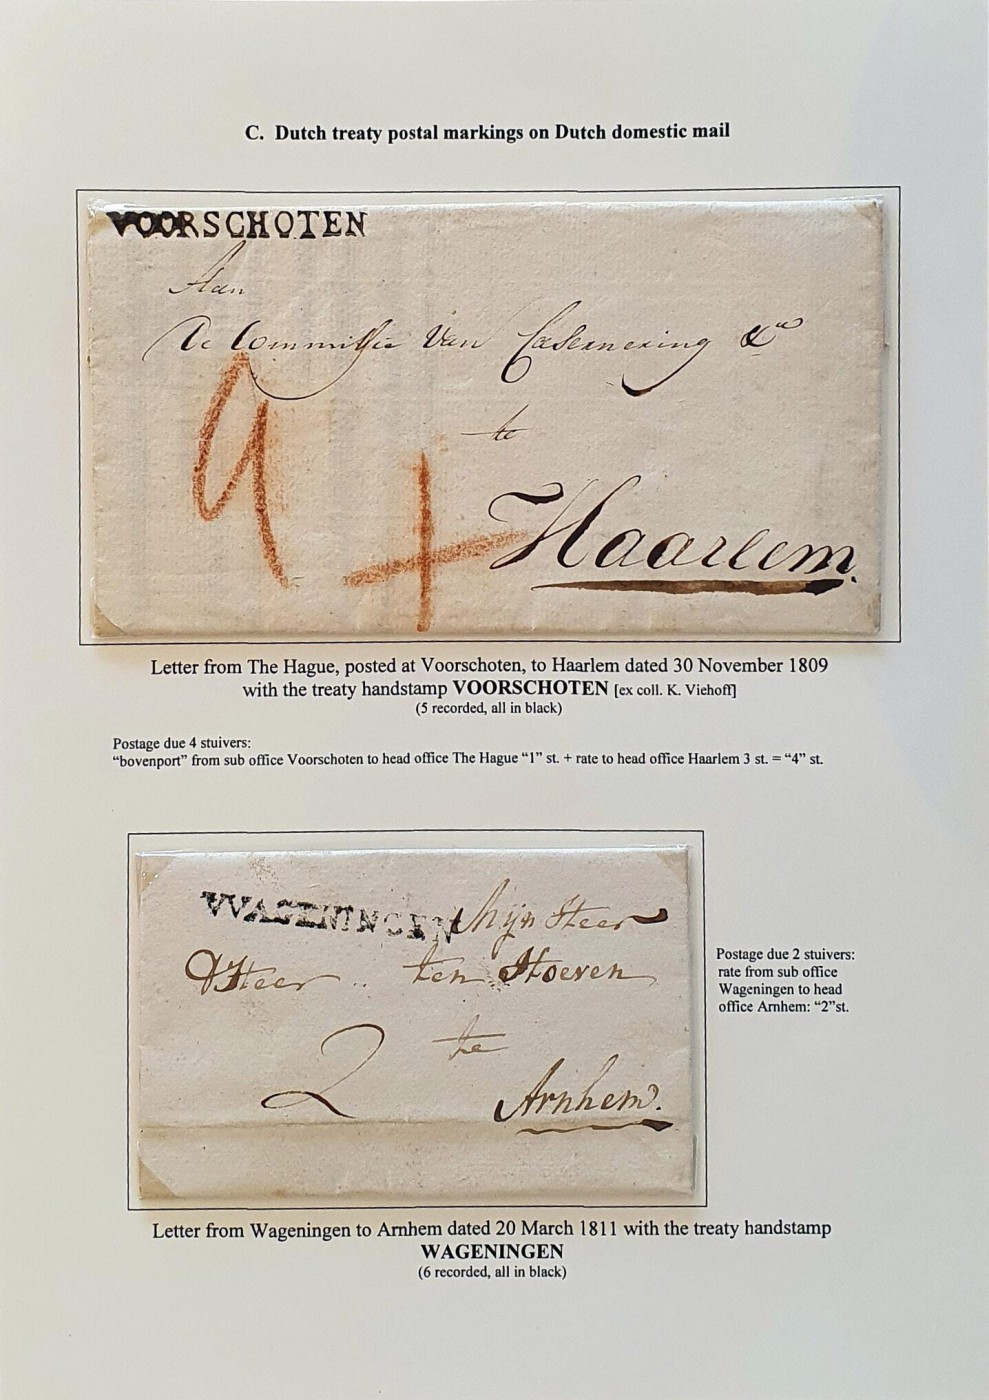 C. Dutch treaty postal markings on Dutch domestic mail
VOORSCHOTEN
Aan
De Commissie Van Casernering &ca
te
Haarlem.
Letter from The Hague, posted at Voorschoten, to Haarlem dated 30 November 1809
with the treaty handstamp VOORSCHOTEN [ex coll. K. Viehoff]
(5 recorded, all in black)
Postage due 4 stuivers:
“bovenport” from sub office Voorschoten to head office The Hague “1” st. + rate to head office Haarlem 3 st. = “4” st.
WAGENINGEN Mijn Heer
D Heer ten Hoeven
te
2
Arnhem.
Postage due 2 stuivers:
rate from sub office
Wageningen to head
office Arnhem: “2”st.
Letter from Wageningen to Arnhem dated 20 March 1811 with the treaty handstamp
WAGENINGEN
(6 recorded, all in black)